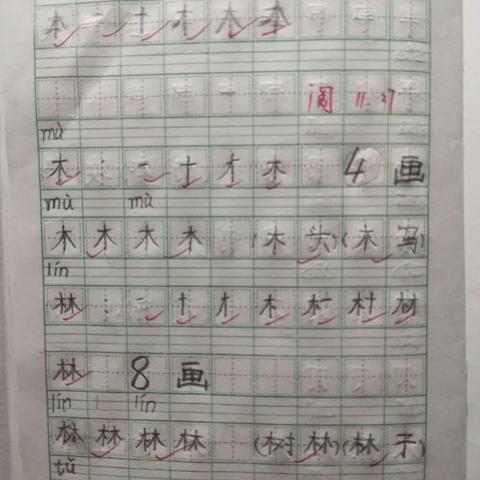 本 一 十 才 木 本
阅 11.27
mù
木 一 十 才 木 4 画
mù mù
木 木 木 木 (木 头)(木 马)
lín
林 一 十 才 木 村 材
林 8 画
lín lín
林 林 林 林 (树 林)(林 子)
tǔ